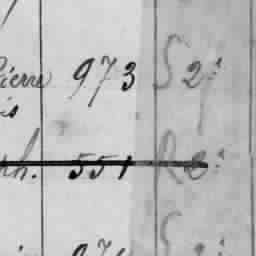 Pierre 973 S 2:
is
ph. 551 R 2: